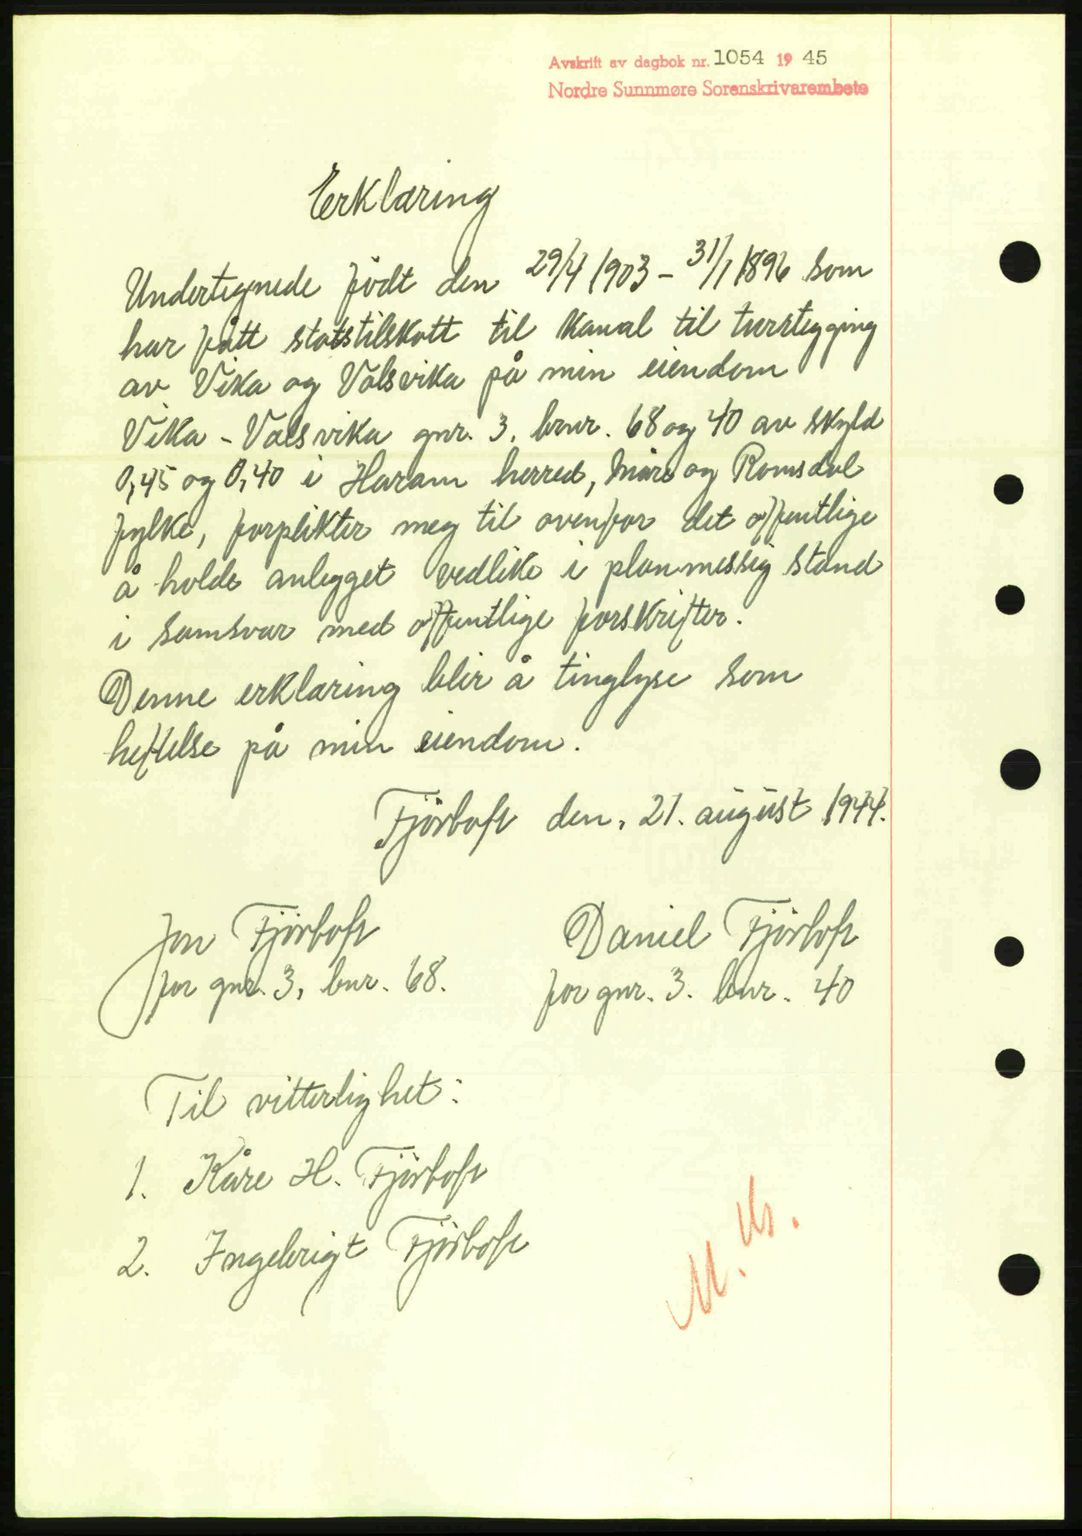 Avskrift av dagbok nr. 1054 19 45
Nordre Sunnmøre Sorenskrivarembete
Erklæring
Undertegnede födt den 29/4 1903 - 31/1 1896 som
har fått statstilskott til kanal til tørrlegging
av Vika og Valsvika på min eiendom
Vika - Valsvika gnr. 3. brnr. 68 og 40 av skyld
0,45 og 0,40 i Haram herred, Möre og Romsdal
fylke, forplikter meg til ovenfor det offentlige
å holde anlegget vedlike i planmessig stand
i samsvar med offentlige forskrifter.
Denne erklæring blir å tinglyse som
heftelse på min eiendom.
Fjörtoft den, 21. august 1944.
Jon Fjörtoft Daniel Fjörtoft
for gnr. 3, bnr. 68. for gnr. 3. bnr. 40
Til vitterlighet:
1. Kåre H. Fjörtoft
2. Ingebrigt Fjörtoft